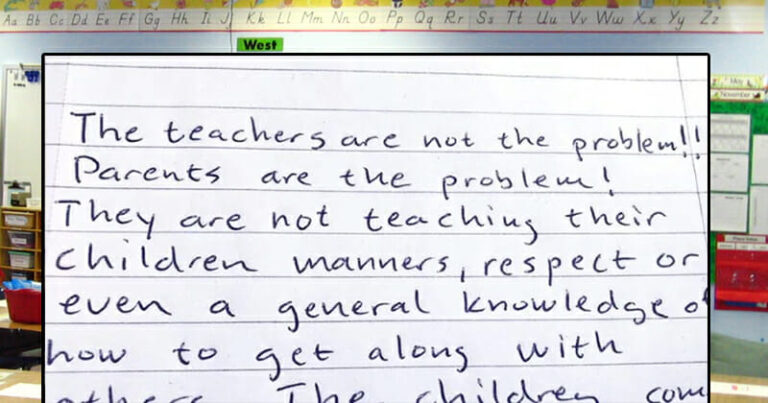 Aa Bb Cc Dd Ee Ff Gg Hh Ii J Kk Ll Mm Nn Oo Pp Qq Rr Ss Tt Uu Vv Ww Xx Yy Zz
West
May
November
Place Value
The teachers are not the problem!!
Parents are the problem!
They are not teaching their
children manners, respect or
even a general knowledge of
how to get along with
others. The children com